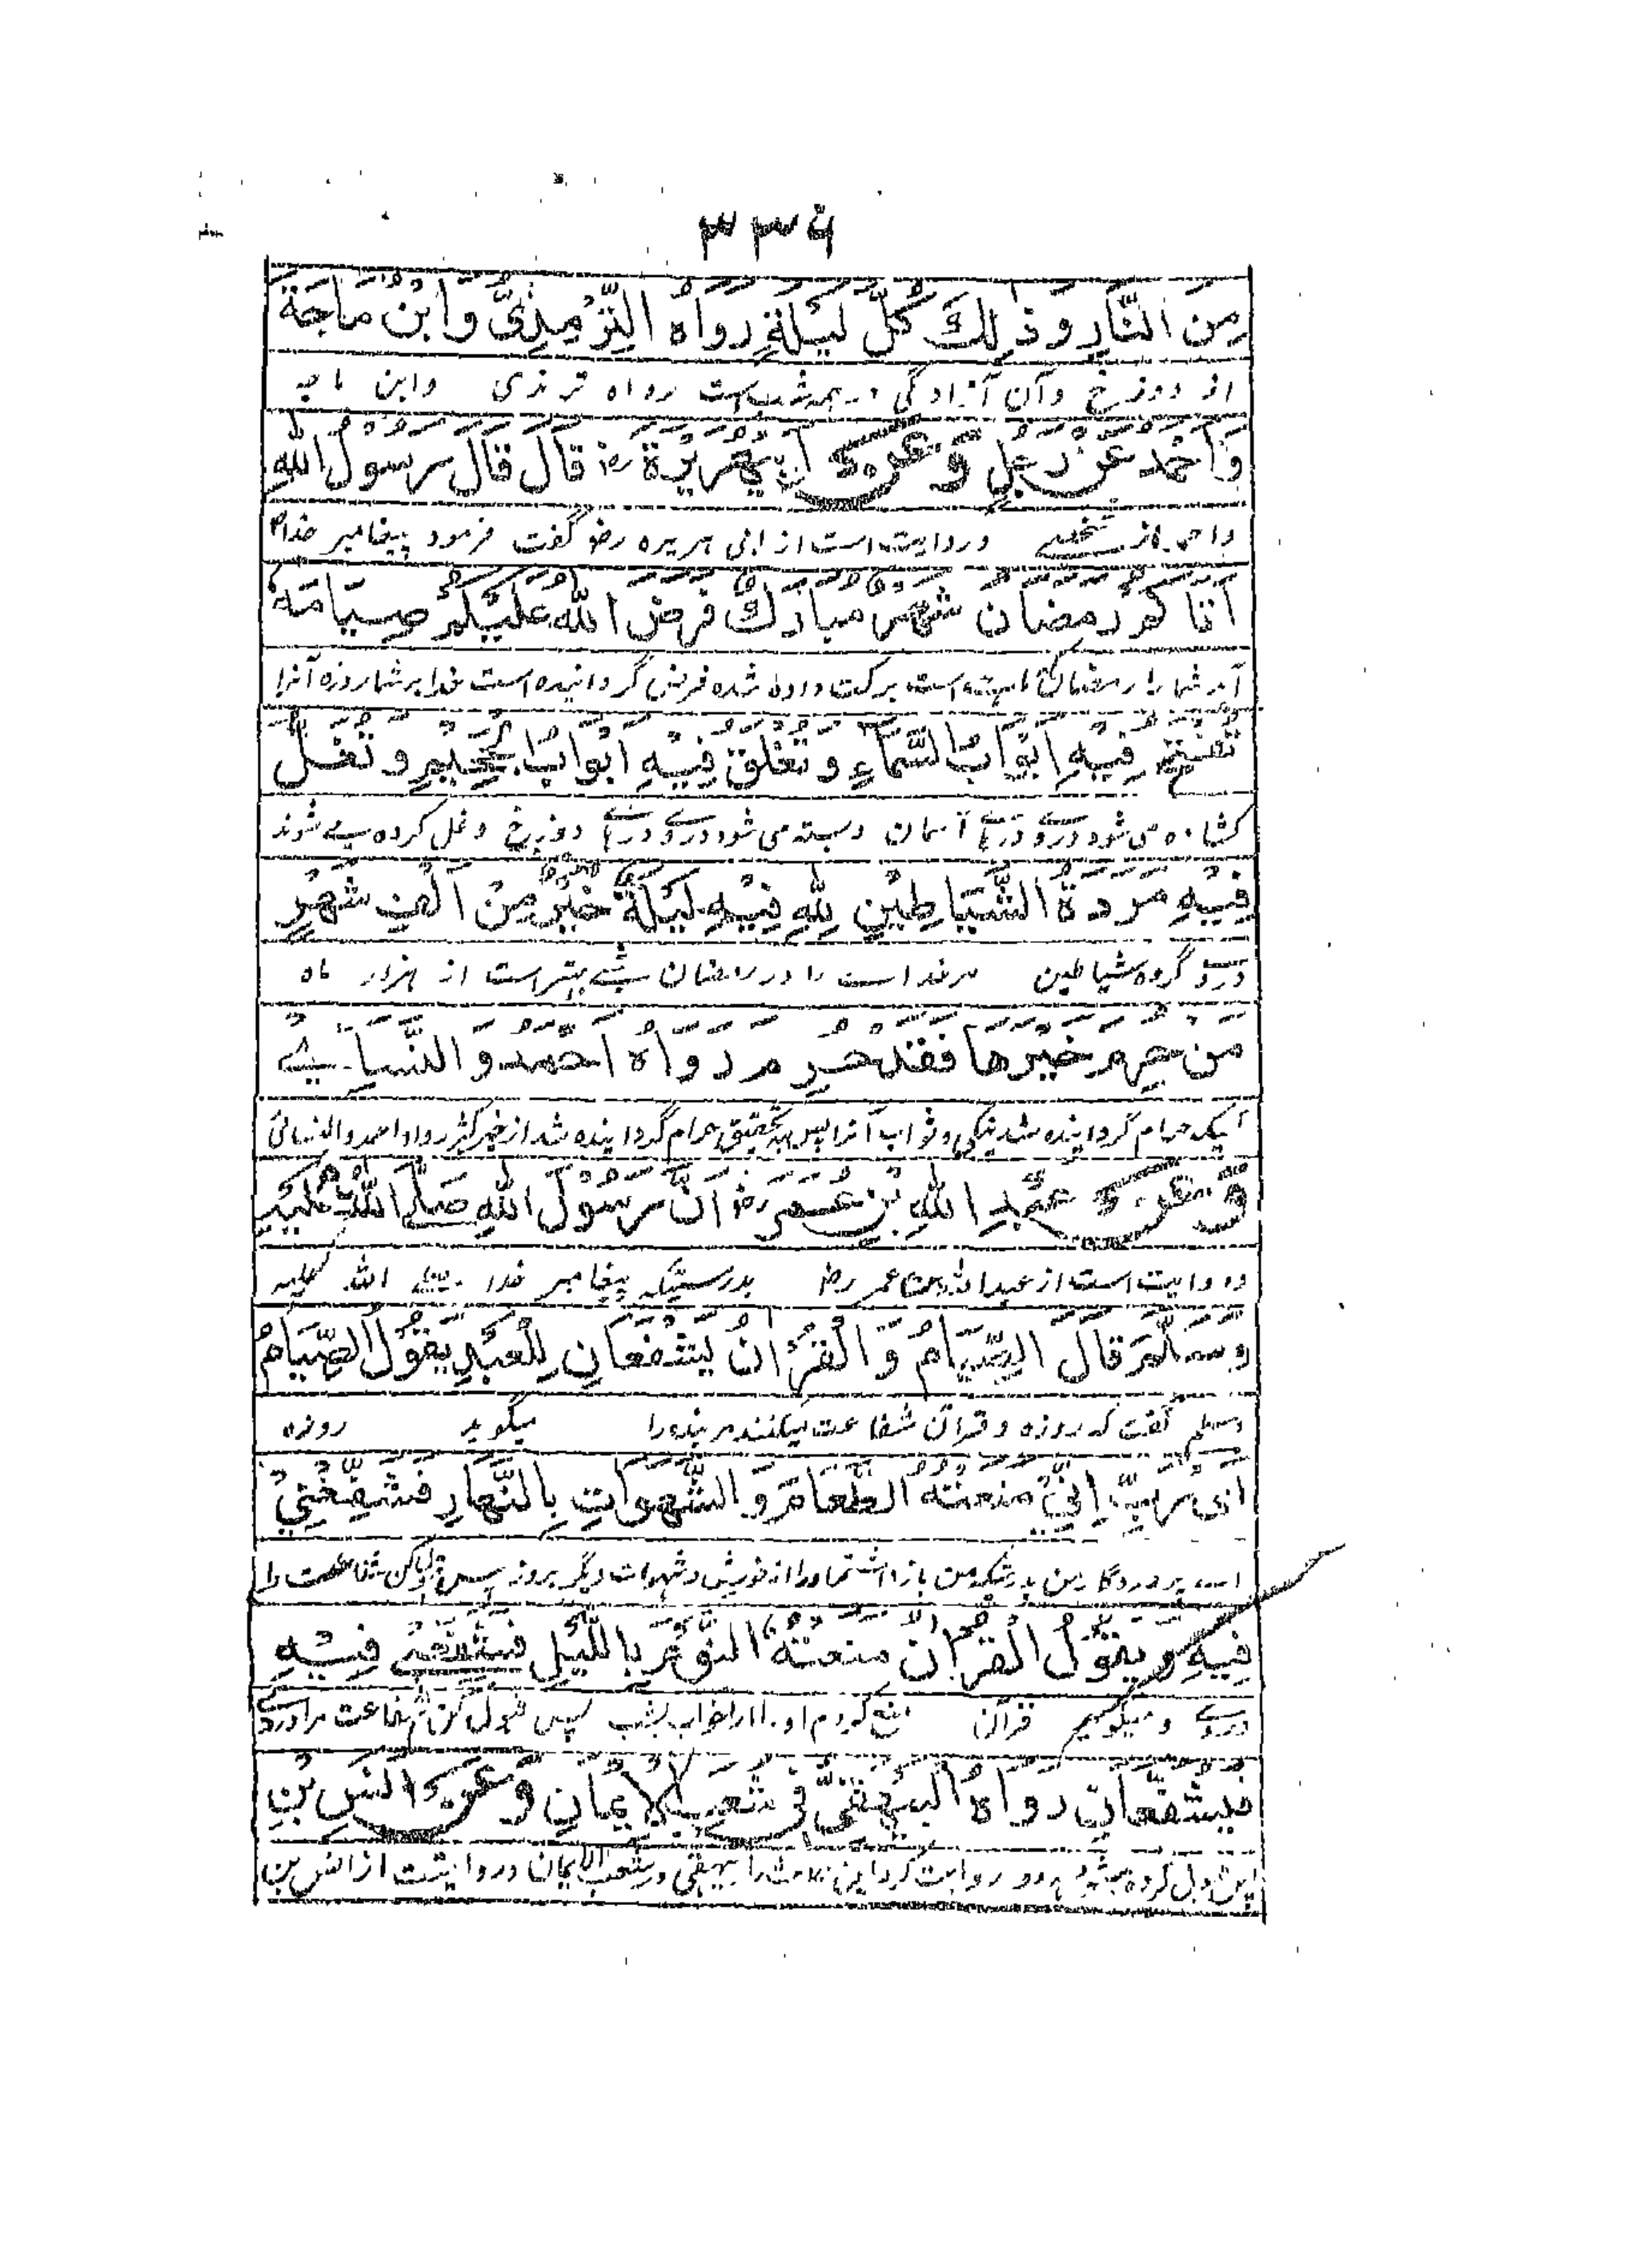 ۳۳۶
مِنَ النَّارِ وَ ذٰلِكَ كُلَّ لَيْلَةٍ رَوَاهُ التِّرْمِذِيُّ وَ ابْنُ مَاجَةَ
از دوزخ وآن آزادگی در همه شب است رواه ترمذی وابن ماجه
وَ أَحْمَدُ عَنْ رَجُلٍ وَ عَنْ أَبِي هُرَيْرَةَ رض قَالَ قَالَ رَسُولُ اللهِ
واحمد از شخصے وروایت است از ابی هریره رض گفت فرمود پیغامبر خدا
أَتَاكُمْ رَمَضَانُ شَهْرٌ مُبَارَكٌ فَرَضَ اللهُ عَلَيْكُمْ صِيَامَهُ
آمد شما را رمضان است برکت داده شده فرض گردانیده است خدا بر شما روزه آنرا
تُفْتَحُ فِيْهِ أَبْوَابُ السَّمَاءِ وَ تُغْلَقُ فِيْهِ أَبْوَابُ الْجَحِيْمِ وَ تُغَلُّ
کشاده می شود دروے درہاے آسمان وبسته می شود دروے درہاے دوزخ وغل کرده مے شوند
فِيْهِ مَرَدَةُ الشَّيَاطِيْنِ لِلّٰهِ فِيْهِ لَيْلَةٌ خَيْرٌ مِنْ أَلْفِ شَهْرٍ
دروے گروه شیاطین مر خدا است را در رمضان شبے بهتر است از هزار ماه
مَنْ حُرِمَ خَيْرَهَا فَقَدْ حُرِمَ رَوَاهُ أَحْمَدُ وَ النَّسَائِيُّ
آنیکه حرام گردانیده شد نیکی وثواب آنرا پس به تحقیق حرام گردانیده شد از خیر کثیر رواه احمد والنسائی
وَ عَنْ عَبْدِ اللهِ بْنِ عُمَرَ رض أَنَّ رَسُولَ اللهِ صَلَّى اللهُ عَلَيْهِ
وروایت است از عبدالله بن عمر رض بدرستیکه پیغامبر خدا صلے الله علیه
وَ سَلَّمَ قَالَ الصِّيَامُ وَ الْقُرْاٰنُ يَشْفَعَانِ لِلْعَبْدِ يَقُوْلُ الصِّيَامُ
وسلم گفت که روزه وقرآن شفاعت میکنند مر بنده را میگوید روزه
اَیْ رَبِّ اِنِّيْ مَنَعْتُهُ الطَّعَامَ وَ الشَّهَوَاتِ بِالنَّهَارِ فَشَفِّعْنِيْ
اے پروردگار من بدرستیکه من بازداشتم اورا از خورش وشهوات دیگر بروز پس قبول کن شفاعت را
فِيْهِ وَ يَقُوْلُ الْقُرْاٰنُ مَنَعْتُهُ النَّوْمَ بِاللَّيْلِ فَشَفِّعْنِيْ فِيْهِ
دروے ومیگوید قرآن منع کردم اورا از خواب بشب پس قبول کن شفاعت مرا دروے
فَيُشَفَّعَانِ رَوَاهُ الْبَيْهَقِيُّ فِيْ شُعَبِ الْاِيْمَانِ وَ عَنْ أَنَسِ بْنِ
پس قبول کرده میشود هر دو روایت کرد این حدیث را بیهقی در شعب الایمان وروایت است از انس بن